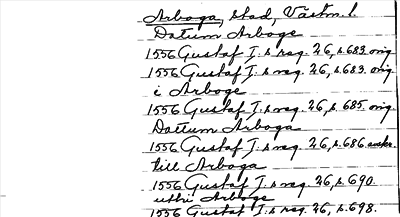 Arboga, stad, Västm. l.
Datum Arboge
1556 Gustaf I:s reg. 26, s. 683 orig
1556 Gustaf I:s reg. 26, s. 683. orig
i Arboge
1556 Gustaf I:s reg. 26, s. 685 orig.
Dattum Arboga
1556 Gustaf I:s reg. 26, s. 686
till Arboga
1556 Gustaf I:s reg. 26, s. 690
uthi Arboge
1556 Gustaf I:s reg. 26, s. 698.